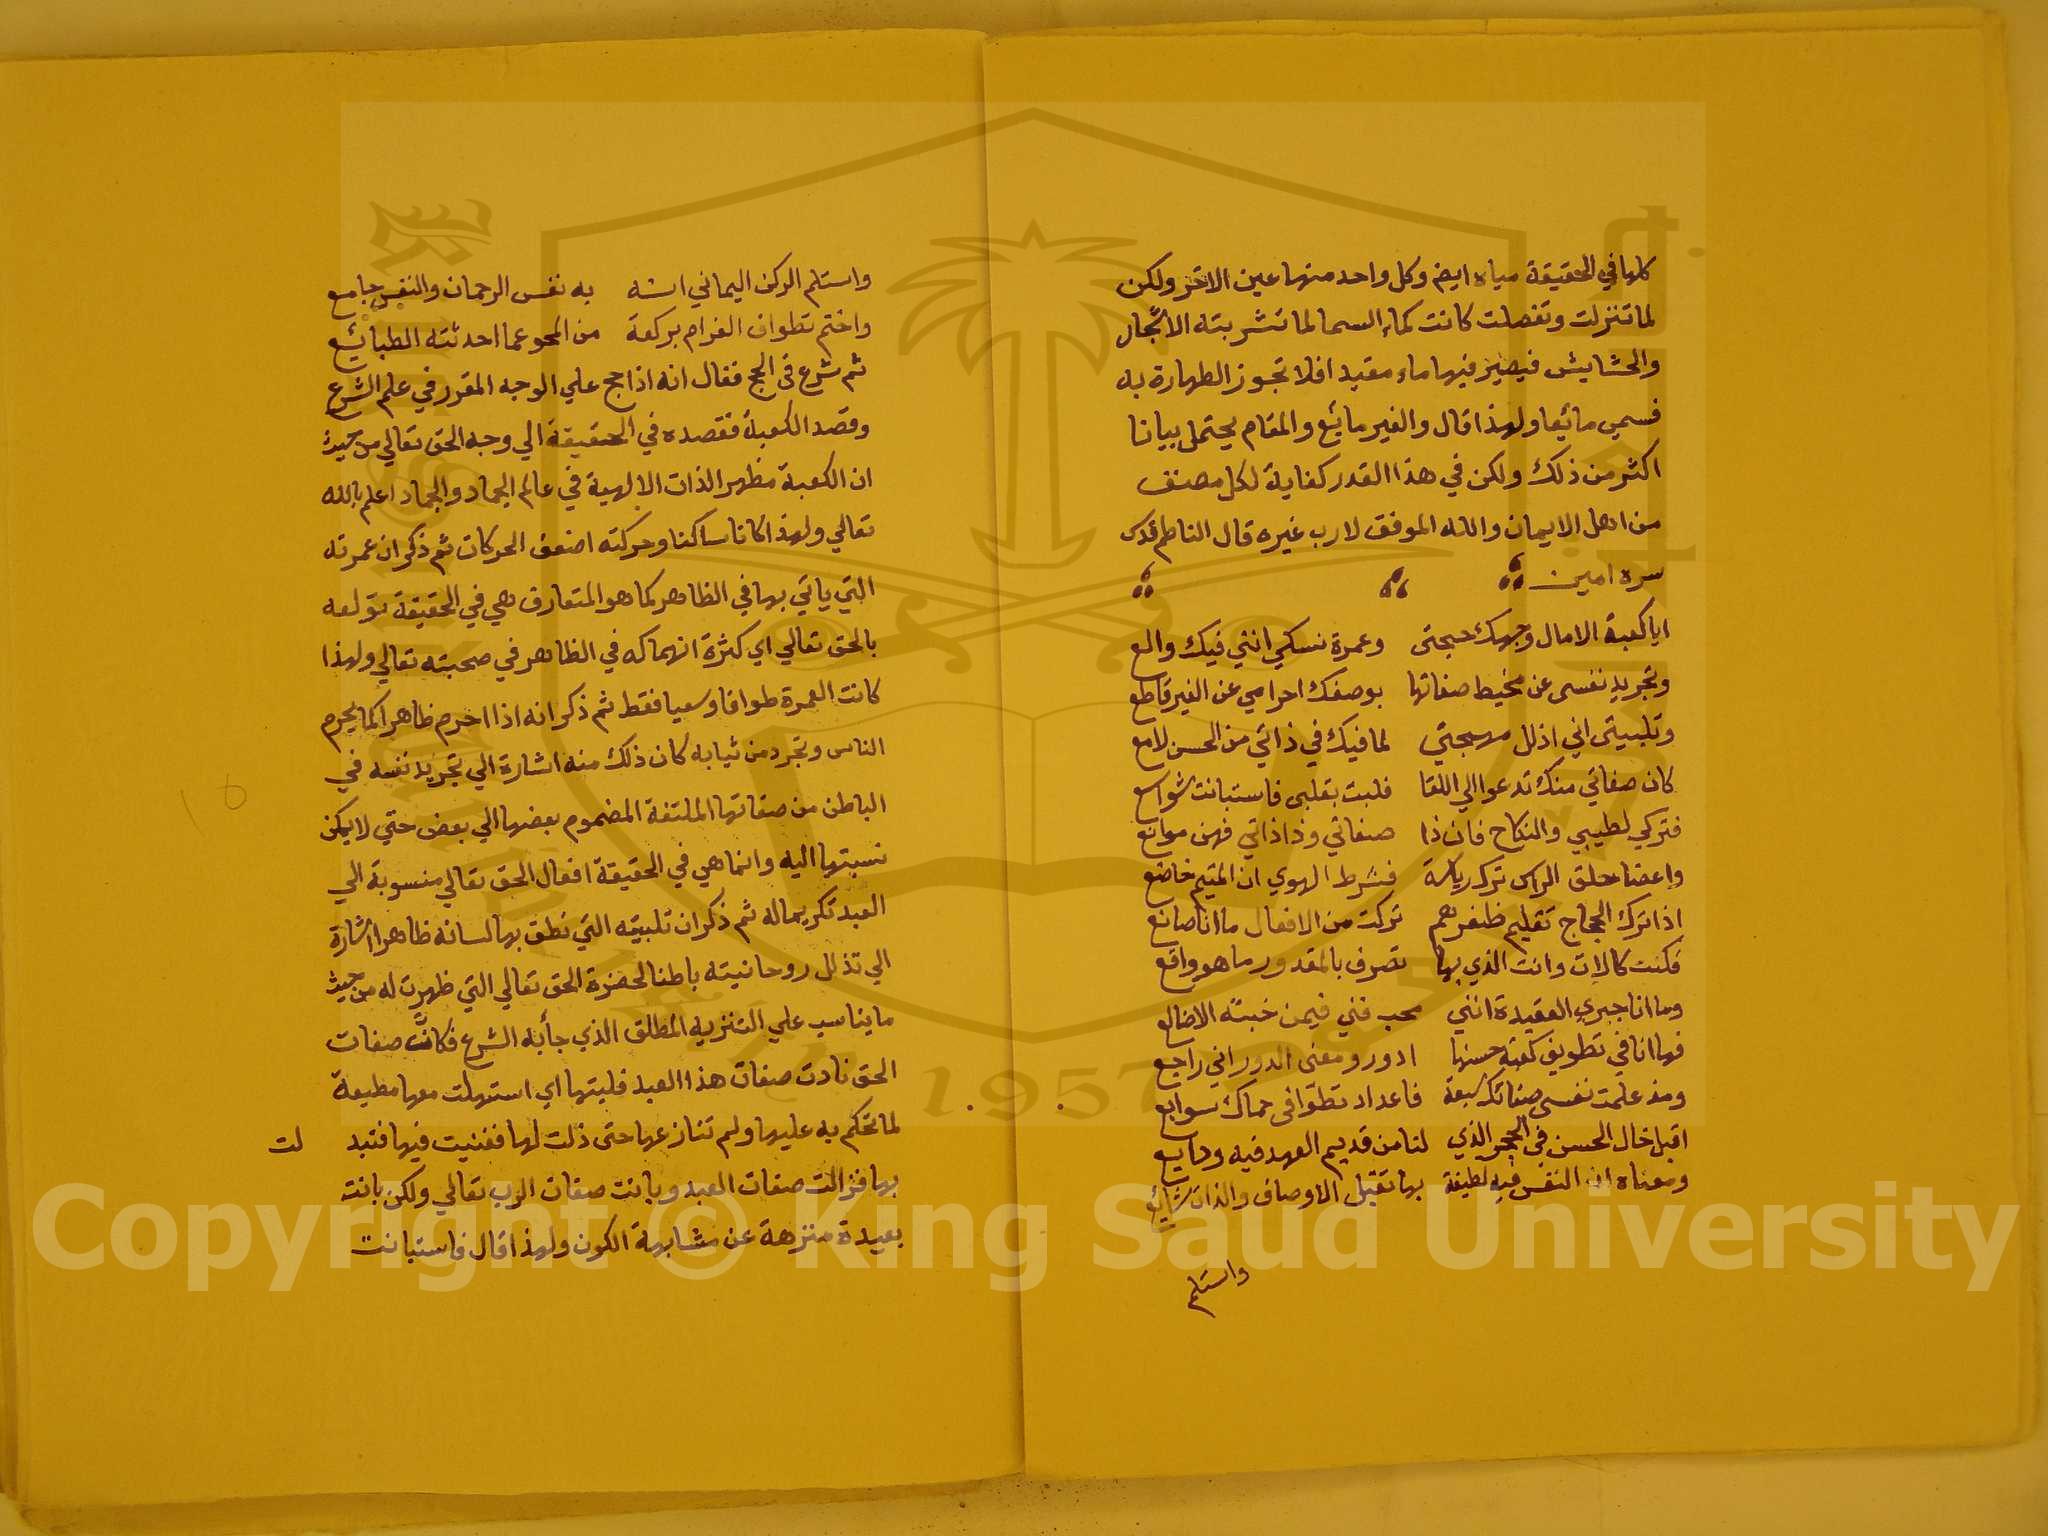 كلها في الحقيقة مياه ايضا وكل واحد منها عين الاخر ولكن
لما تنزلت وتفصلت كانت كماء السما لما تشربته الاشجار
والحشايش فيصير فيها ماء مقيدا فلا تجوز الطهارة به
فسمي مائعا ولهذا قال والغير مايع والمقام يحتمل بيانا
اكثر من ذلك ولكن في هذا القدر كفاية لكل مصنف
من اهل الايمان والله الموفق لا رب غيره قال الناظم قدس
سره امين
ايا كعبة الامال وجهك حجتى وعمرة نسكي انني فيك والع
وتجريد نفسى عن مخيط صفاتها بوصفك احرامي عن الغير قاطع
وتلبيتى اني اذلل مهجتي لما فيك في ذاتي من الحسن لامع
كان صفاتي منك تدعوا الي اللقا فلبت بقلبى فاستبانت شواسع
فتركي لطيبي والنكاح فان ذا صفاتي وذا ذاتي فهن موانع
واعفا حلق الراس ترك رياسة فشرط الهوي ان المتيم خاضع
اذا ترك الحجاج تقليم ظفرهم تركت من الافعال ما انا صانع
فكنت كالات وانت الذي بها تصرف بالمقدور ما هو واقع
وما انا جبري العقيدة انني محب فني فيمن خبته الاضالع
فها انا في تطويف كعبة حسنها ادور ومعنى الدور اني راجع
ومذ علمت نفسى صفاتك سبعة فاعداد تطوافى حماك سوابع
اقبل خال الحسن في الحجر الذي لنا من قديم العهد فيه ودايع
ومعناه ان النفس فيه لطيفة بها تقبل الاوصاف والذات شايع
واستلم
واستلم الركن اليماني انه به نفس الرحمان والنفس جامع
واختم تطواف الغرام بركعة من المحو عما احدثته الطبائع
ثم شرع في الحج فقال انه اذا حج علي الوجه المقرر في علم الشرع
وقصد الكعبة فقصده في الحقيقة الي وجه الحق تعالي من حيث
ان الكعبة مظهر الذات الالهية في عالم الجماد والجماد اعلم بالله
تعالي ولهذا كانا ساكنا وحركته اضعف الحركات ثم ذكر ان عمرته
التي ياتي بها في الظاهر كما هو المتعارف هي في الحقيقة تولعه
بالحق تعالي اي كثرة انهماكه في الظاهر في محبته تعالي ولهذا
كانت العمرة طوافا وسعيا فقط ثم ذكر انه اذا احرم ظاهرا كما يحرم
الناس وتجرد من ثيابه كان ذلك منه اشارة الي تجريد نفسه في
الباطن من صفاتها الملتفة المضموم بعضها الي بعض حتي لا يمكن
نسبتها اليه وانما هي في الحقيقة افعال الحق تعالي منسوبة الي
العبد تكريما له ثم ذكر ان تلبيته التي نطق بها لسانه ظاهرا اشارة
الي تذلل روحانيته باطنا لحضرة الحق تعالي التي ظهرت له من حيث
ما يناسب علي التنزيه المطلق الذي جأ به الشرع فكانت صفات
الحق نادت صفات هذا العبد فلبتها اي استهلت معها مطيعة
لما تحكم به عليها ولم تنازعها حتى ذلت لها ففنيت فيها فتبد لت
بها فزالت صفات العبد وبانت صفات الرب تعالي ولكن بانت
بعيدة منزهة عن مشابهة الكون ولهذا قال فاستبانت
١٥
1957
Copyright © King Saud University